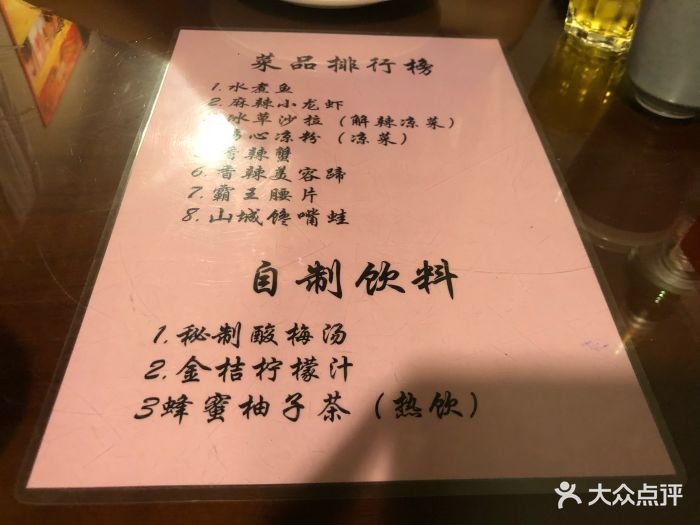 菜品排行榜
1.水煮鱼
2.麻辣小龙虾
冰草沙拉（解辣凉菜）
心凉粉（凉菜）
香辣蟹
6.香辣美容蹄
7.霸王腰片
8.山城馋嘴蛙
自制饮料
1.秘制酸梅汤
2.金桔柠檬汁
3蜂蜜柚子茶（热饮）
大众点评